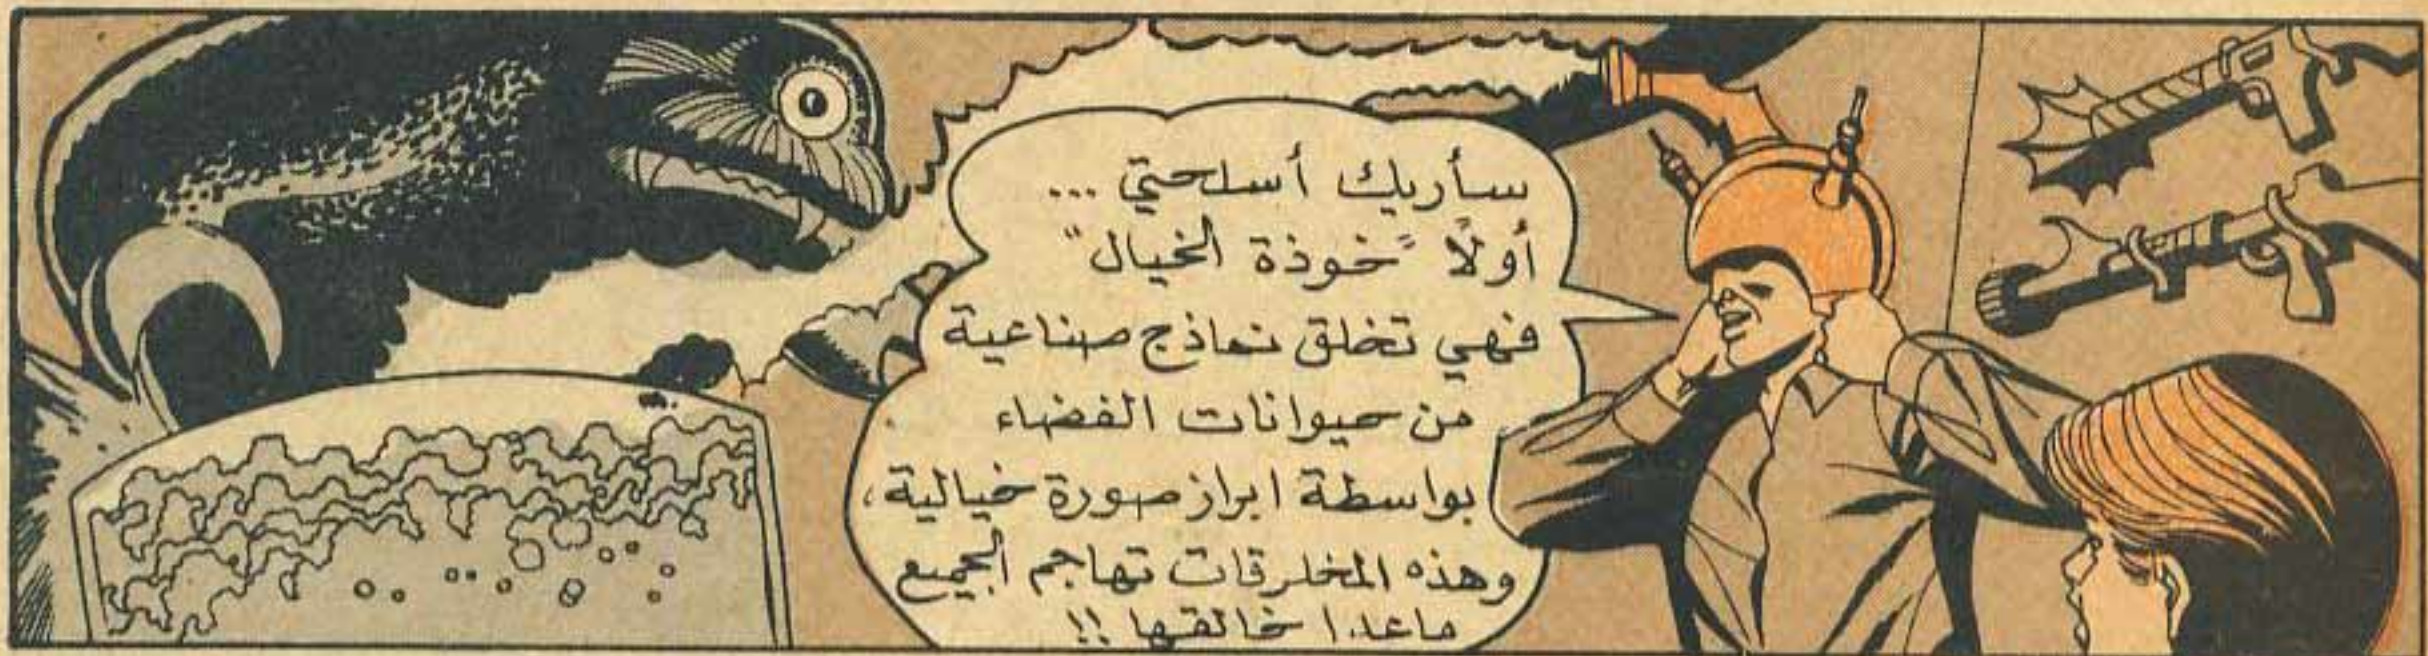 سأريك أسلحتي ...
أولاً "خوذة الخيال"
فهي تخلق نماذج صناعية
من حيوانات الفضاء
بواسطة ابراز صورة خيالية،
وهذه المخلوقات تهاجم الجميع
ماعدا خالقها !!